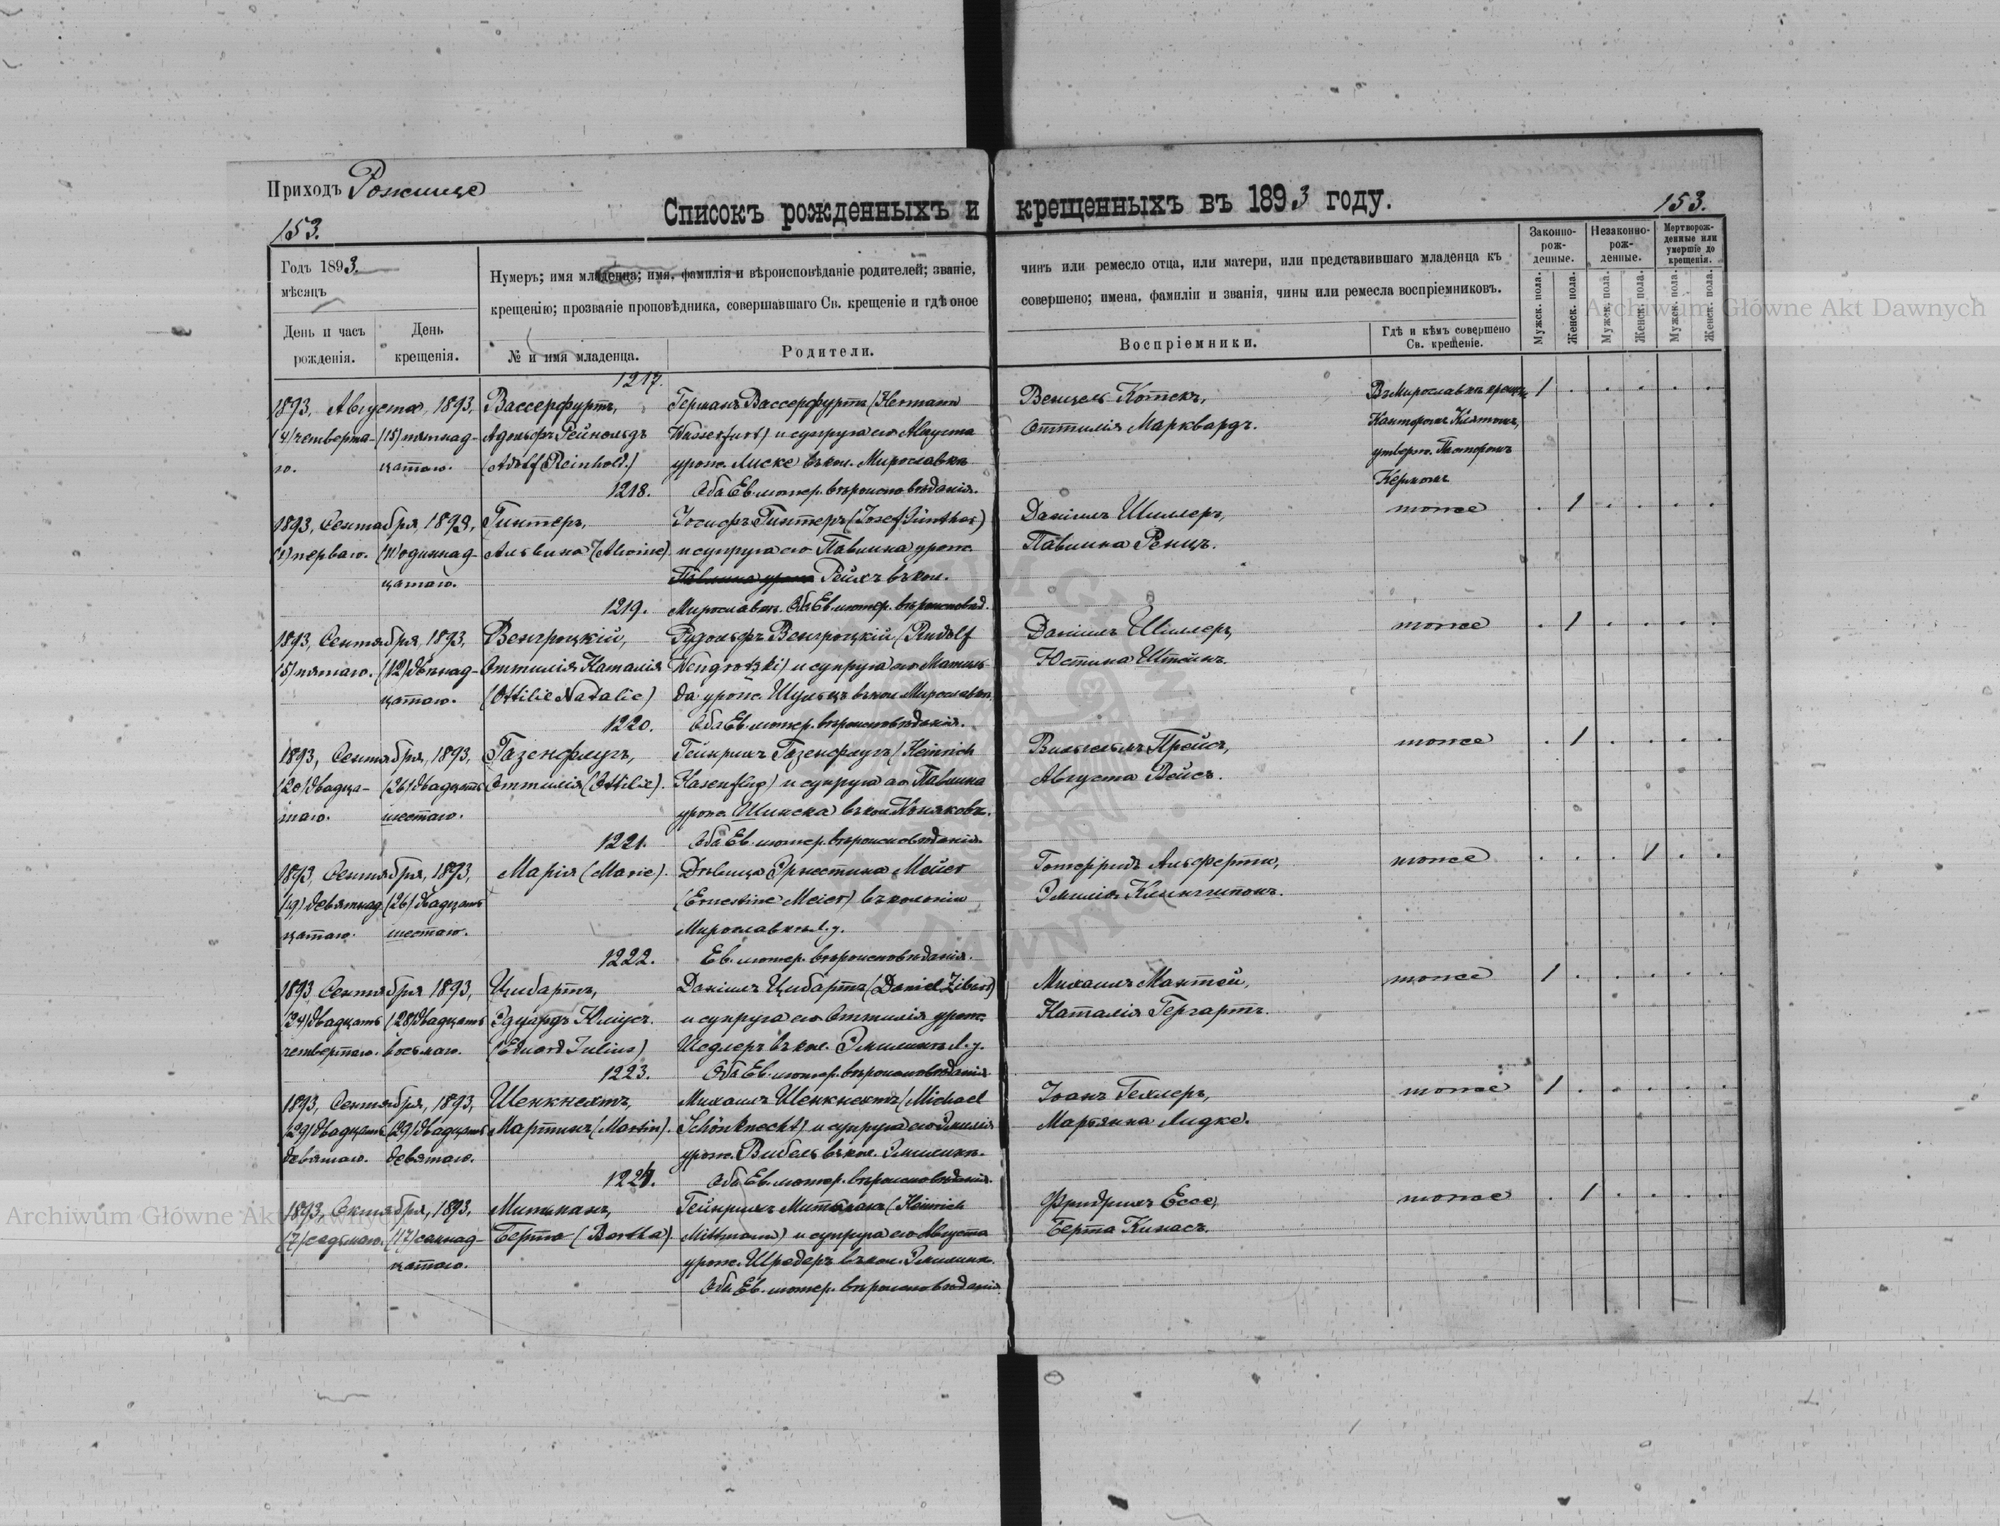 Приходъ Рожище
Списокъ рожденныхъ и крещенныхъ въ 1893 году.
153.
153.
Годъ 1893.
мѣсяцъ
День и часъ рожденія.
День крещенія.
Нумеръ; имя младенца; имя, фамилія и вѣроисповѣданіе родителей; званіе, чинъ или ремесло отца, или матери, или представившаго младенца къ
крещенію; прозваніе проповѣдника, совершавшаго Св. крещеніе и гдѣ оное совершено; имена, фамиліи и званія, чины или ремесла воспріемниковъ.
№ и имя младенца.
Родители.
Воспріемники.
Гдѣ и кѣмъ совершено Св. крещеніе.
Законно-рож-денные.
Незаконно-рож-денные.
Мертворож-денные или умершіе до крещенія.
Мужск. пола.
Женск. пола.
Мужск. пола.
Женск. пола.
Мужск. пола.
Женск. пола.
1217.
1893, Августа, 1893, Вассерфуртъ, Германъ Вассерфуртъ (Hermann Венцель Котекъ, Въ Мирославкѣ 1
(4) четверта- (15) пятнад- Адольфъ Рейнольдъ Wasserfurt) и супруга его Августа Оттилія Марквардъ. Канторомъ
го. цатаго. (Adolf Reinhold.) урож. Лиске въ кол. Мирославкѣ утверж. Пасторомъ
1218. Оба Ев. лютер. вѣроисповѣданія. Керномъ
1893, Сентября, 1893, Гинтеръ, Іосифъ Гинтеръ (Josef Günther) Даніилъ Шиллеръ, тоже 1
(1) перваго. (11) одиннад- Альвина (Alwine) и супруга его Павлина урож. Павлина Ренцъ.
цатаго. Рейхъ въ кол.
1219. Мирославкѣ. Оба Ев. лютер. вѣроисповѣд.
1893, Сентября, 1893, Венгроцкій, Рудольфъ Венгроцкій (Rudolf Даніилъ Шиллеръ, тоже 1
(5) пятаго. (12) двѣнад- Оттилія Наталія Wengrotzki) и супруга его Матиль- Юстина Штейнъ.
цатаго. (Ottilie Natalie) да урож. Шульцъ въ кол. Мирославкѣ.
1220. Оба Ев. лютер. вѣроисповѣданія.
1893, Сентября, 1893, Газенфлугъ, Гейнрихъ Газенфлугъ (Heinrich Вильгельмъ Прейсъ, тоже 1
(20) двадца- (26) двадцать Оттилія (Ottilie). Hasenflug) и супруга его Павлина Августа Вейсъ.
таго. шестаго. урож. Шинска въ кол.
1221. Оба Ев. лютер. вѣроисповѣданія.
1893 Сентября, 1893, Марія (Marie). Дѣвица Эрнестина Мейеръ Готфридъ тоже 1
(19) девятнад (26) двадцать (Ernestine Meier) въ колоніи Эмилія
цатаго. шестаго. Мирославкѣ Л. у.
1222. Ев. лютер. вѣроисповѣданія.
1893 Сентября 1893, Цибартъ, Даніилъ Цибартъ (Daniel Zibart) Михаилъ Мантей, тоже 1
(24) двадцать (28) двадцать Эдуардъ Юліусъ. и супруга его Оттилія урож. Наталія Гергартъ.
четвертаго. восьмаго. (Eduard Julius) Цедлеръ въ кол. Эмилинѣ Л. у.
1223. Оба Ев. лютер. вѣроисповѣданія.
1893, Сентября, 1893, Шенкнехтъ, Михаилъ Шенкнехтъ (Michael Іоанъ Гехлеръ, тоже 1
(29) двадцать (29) двадцать Мартинъ (Martin). Schönknecht) и супруга его Эмилія Марьянна Лидке.
девятаго. девятаго. урож. Вибель въ кол. Эмилинѣ.
1224. Оба Ев. лютер. вѣроисповѣданія.
1893, Октября, 1893, Митманъ, Гейнрихъ Митманъ (Heinrich Фридрихъ Ессе, тоже 1
(7) седьмаго. (17) семнад- Берта (Bertha) Mittmann) и супруга его Августа Берта Кинасъ.
цатаго. урож. Шредеръ въ кол. Эмилинѣ.
Оба Ев. лютер. вѣроисповѣданія.
Archiwum Główne Akt Dawnych
Archiwum Główne Akt Dawnych